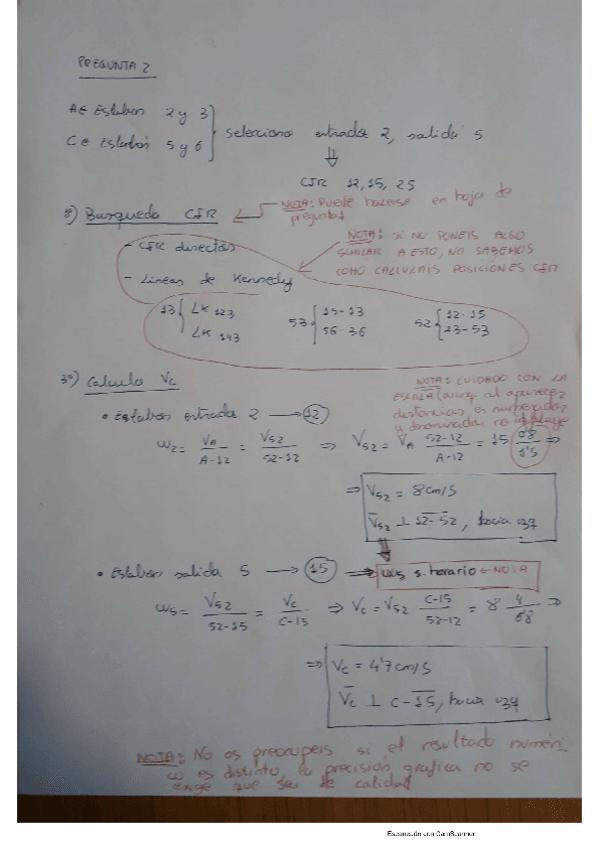 PREGUNTA 2
A ∈ Eslabón 2 y 3
C ∈ Eslabón 5 y 6
selecciono entrada 2, salida 5
⇓
CIR 12, 15, 25
NOTA: Puede hacerse en hoja de
preguntas
2º) Busqueda CIR
NOTA: SI NO PONEIS ALGO
SIMILAR A ESTO, NO SABEMOS
COMO CALCULAIS POSICIONES CIR
- CIR directos
- Lineas de Kennedy
13 { LK 123
LK 143
53 { 15-13
56-36
52 { 12-15
23-53
3º) Calculo Vc
NOTA: CUIDADO CON LA
ESCALA (aunq. al aparecer
distancias en numerador
y denominador no influye
• Eslabon entrada 2 → 12
W2 = VA / A-12 = V52 / 52-12 ⇒ V52 = VA 52-12 / A-12 = 15 0'8 / 1'5 ⇒
⇒ V52 = 8 cm/s
V52 ⊥ 12-52, hacia izq
• Eslabon salida 5 → 15 → W5 s. horario ← NOTA
W5 = V52 / 52-15 = Vc / C-15 ⇒ Vc = V52 C-15 / 52-12 = 8 4 / 6'8 ⇒
⇒ Vc = 4'7 cm/s
Vc ⊥ C-15, hacia izq
NOTA: No os preocupeis si el resultado numéri
co es distinto, la precisión grafica no se
exige que sea de calidad
Escaneado con CamScanner